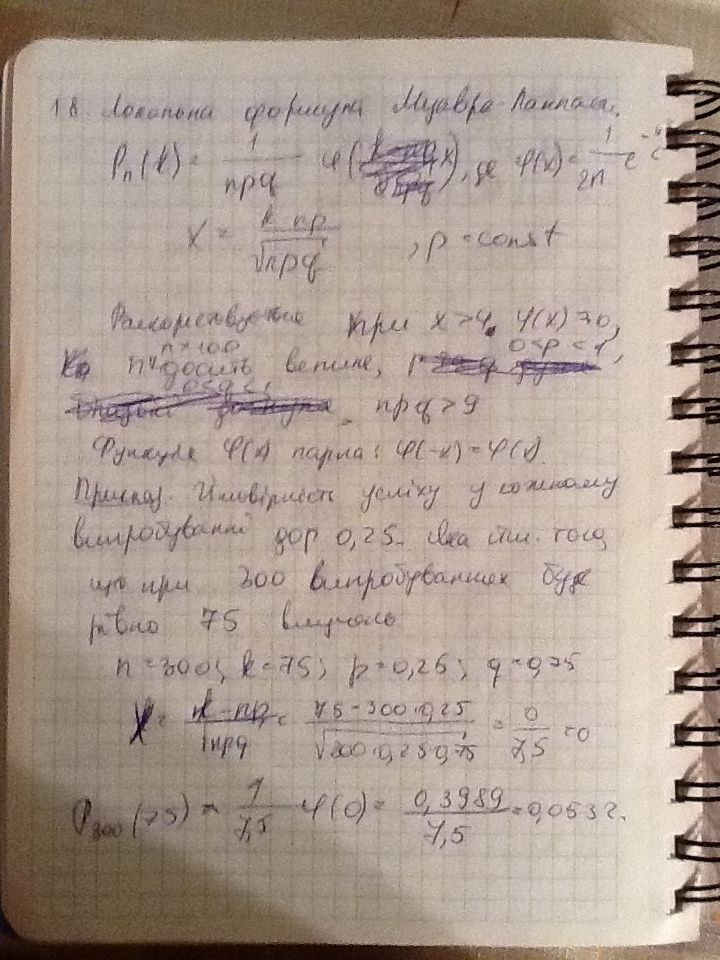 18. Локальна формула Муавра-Лапласа.
Pn(k) = 1/npq φ(x), де φ(x) = 1/2π e
x = k-np/√npq, p = const
Рекомендується при x>4 φ(x)≈0,
n>100 0<p<1
n досит велике,
0<q<1
npq>9
Функція φ(x) парна: φ(-x) = φ(x).
Приклад. Імовірност успіху у кожному
випробуванні дор 0,25. Яка ім. того,
що при 300 випробуваннях буде
рівно 75 випроб
n=300; k=75; p=0,25; q=0,75
x = k-np/√npq = 75-300·0,25/√300·0,25·0,75 = 0/7,5 = 0
P300(75) ≈ 1/7,5 φ(0) = 0,3989/7,5 = 0,0532.